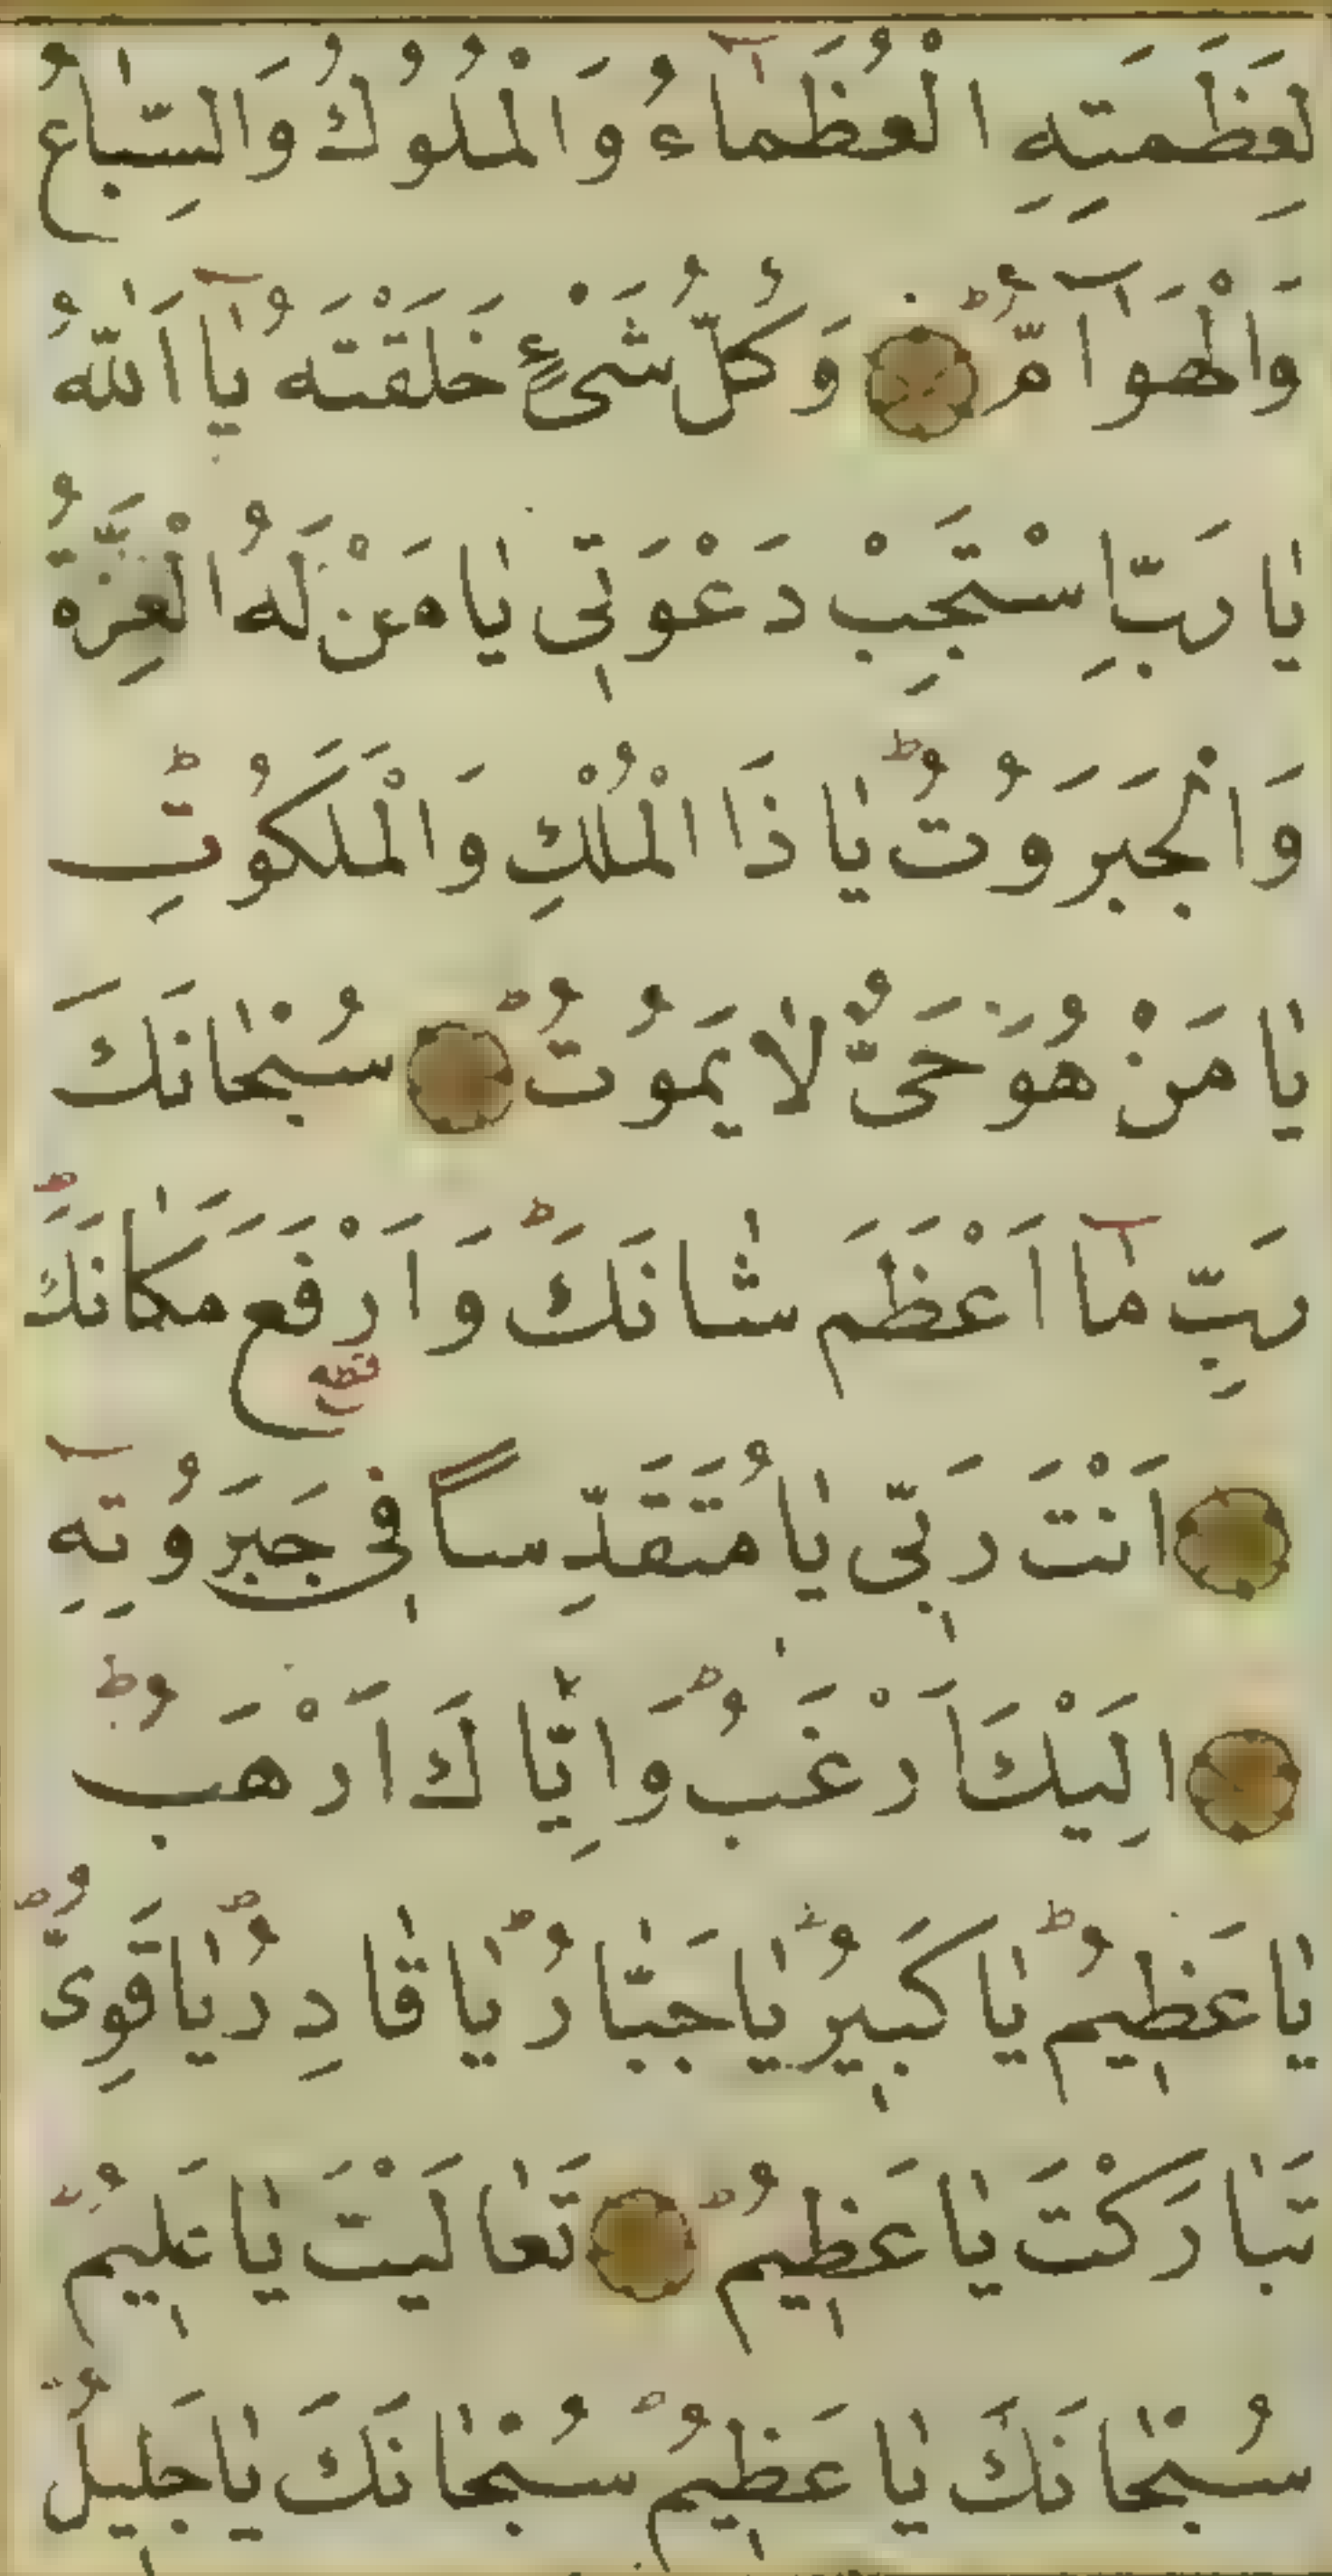 لِعَظَمَتِهِ الْعُظَمَآءُ وَالْمُلُوكُ وَالسِّبَاعُ
وَالْهَوَآمُّ وَكُلُّ شَىْءٍ خَلَقْتَهُ يَا اَللّٰهُ
يَا رَبِّ اسْتَجِبْ دَعْوَتِى يَا مَنْ لَهُ الْعِزَّةُ
وَالْجَبَرُوتُ يَا ذَا الْمُلْكِ وَالْمَلَكُوتِ
يَا مَنْ هُوَ حَىٌّ لَا يَمُوتُ سُبْحَانَكَ
رَبِّ مَآ اَعْظَمَ شَانَكَ وَاَرْفَعَ مَكَانَكَ
اَنْتَ رَبِّى يَا مُتَقَدِّسًا فِى جَبَرُوتِهِ
اِلَيْكَ اَرْغَبُ وَاِيَّاكَ اَرْهَبُ
يَا عَظِيمُ يَا كَبِيرُ يَا جَبَّارُ يَا قَادِرُ يَا قَوِىُّ
تَبَارَكْتَ يَا عَظِيمُ تَعَالَيْتَ يَا عَلِيمُ
سُبْحَانَكَ يَا عَظِيمُ سُبْحَانَكَ يَا جَلِيلُ